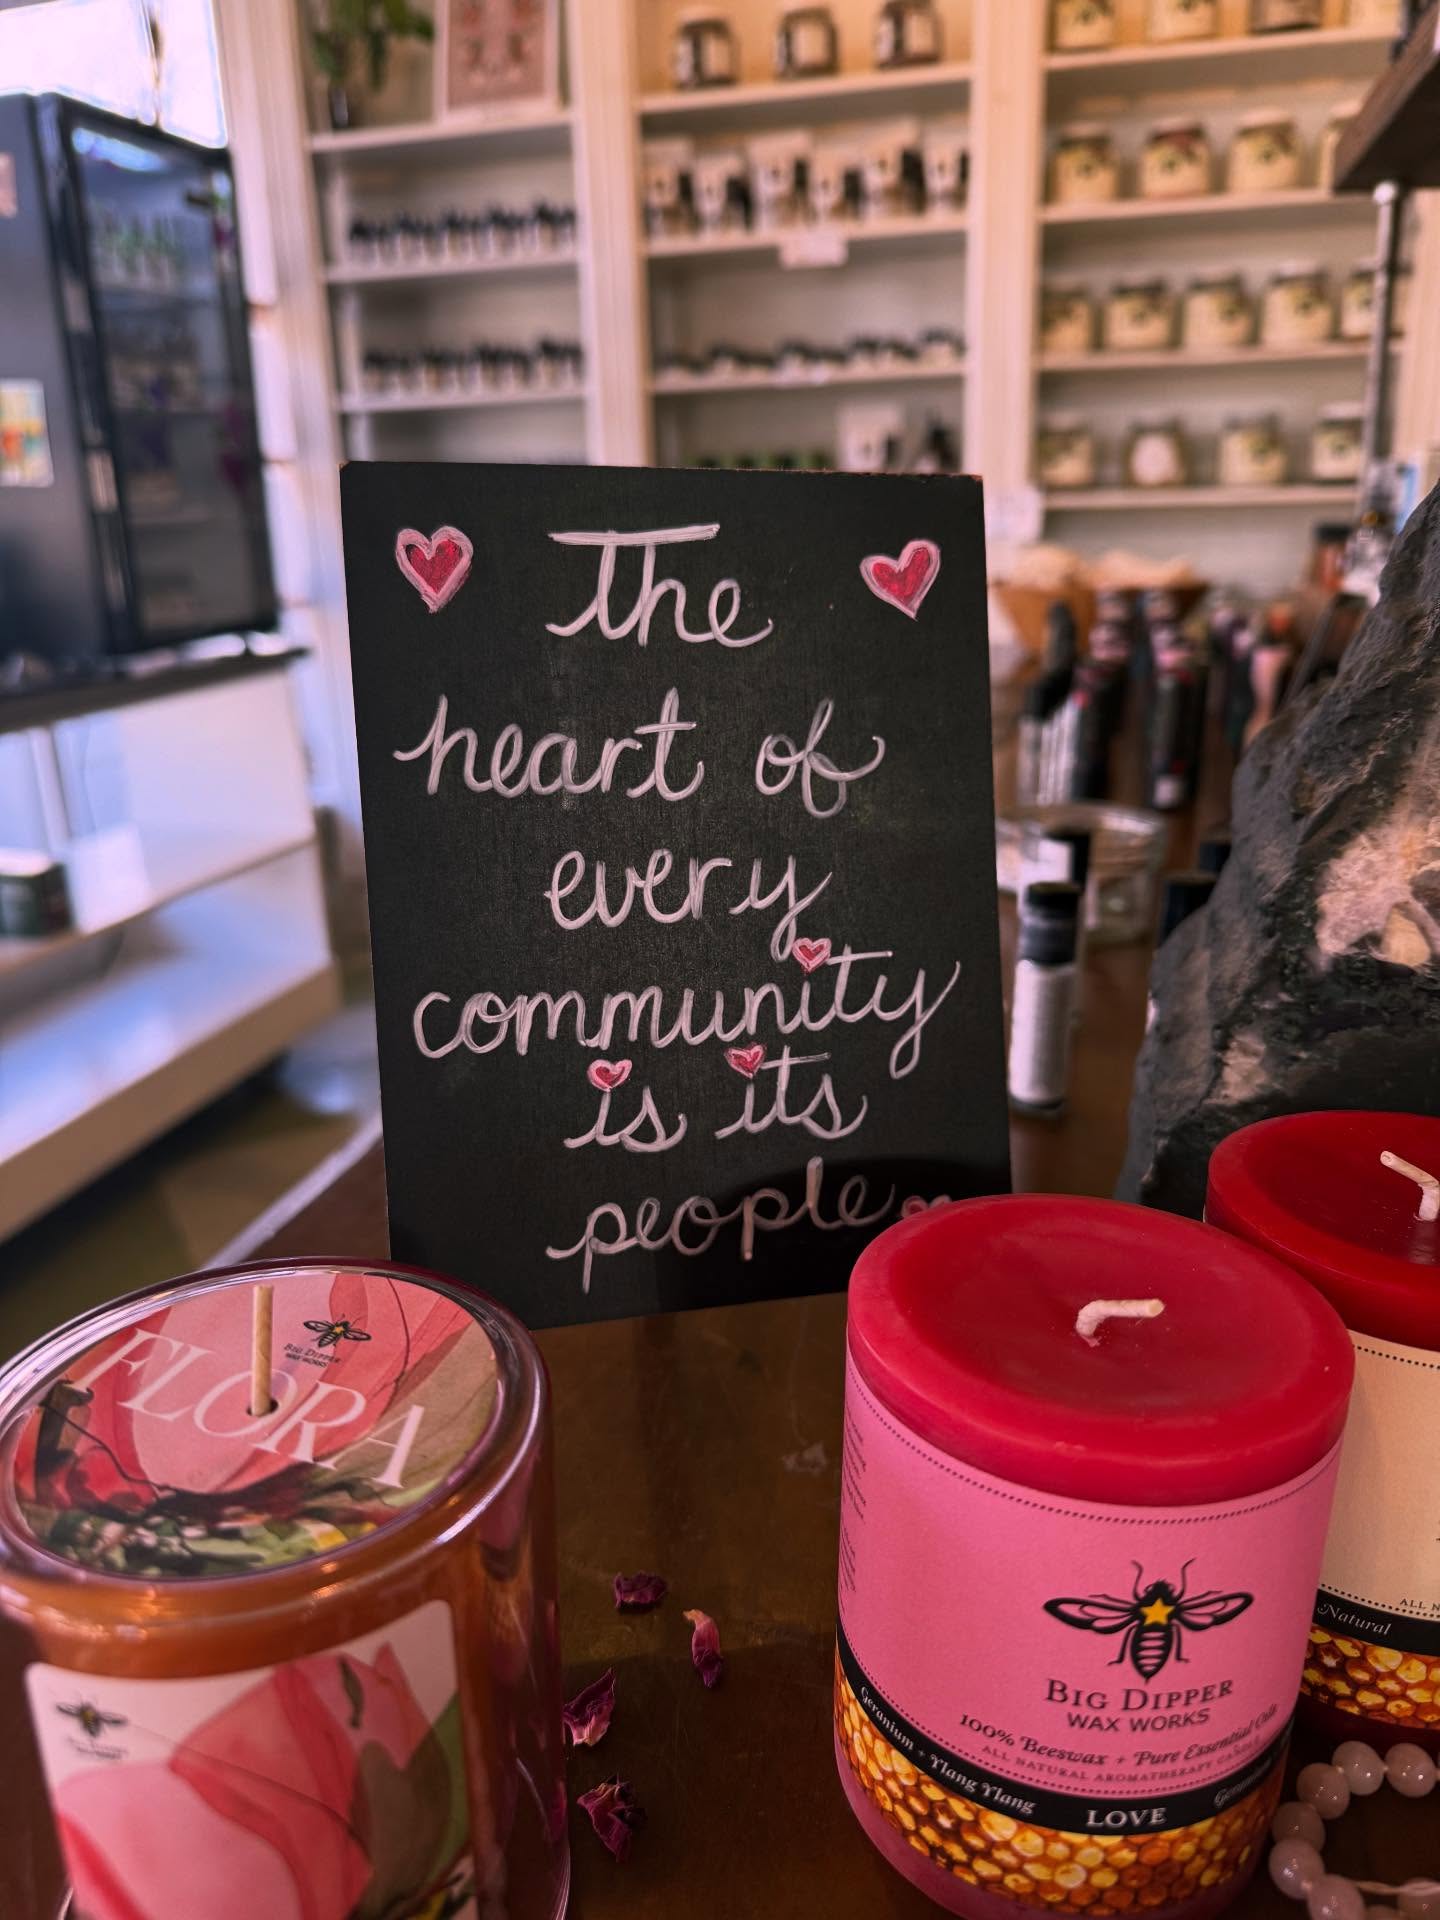 The
heart of
every
community
is its
people
FLORA
BIG DIPPER
WAX WORKS
BIG DIPPER
WAX WORKS
100% Beeswax + Pure Essential Oils
ALL NATURAL AROMATHERAPY CANDLE
Geranium + Ylang Ylang
LOVE
ALL N
Natural